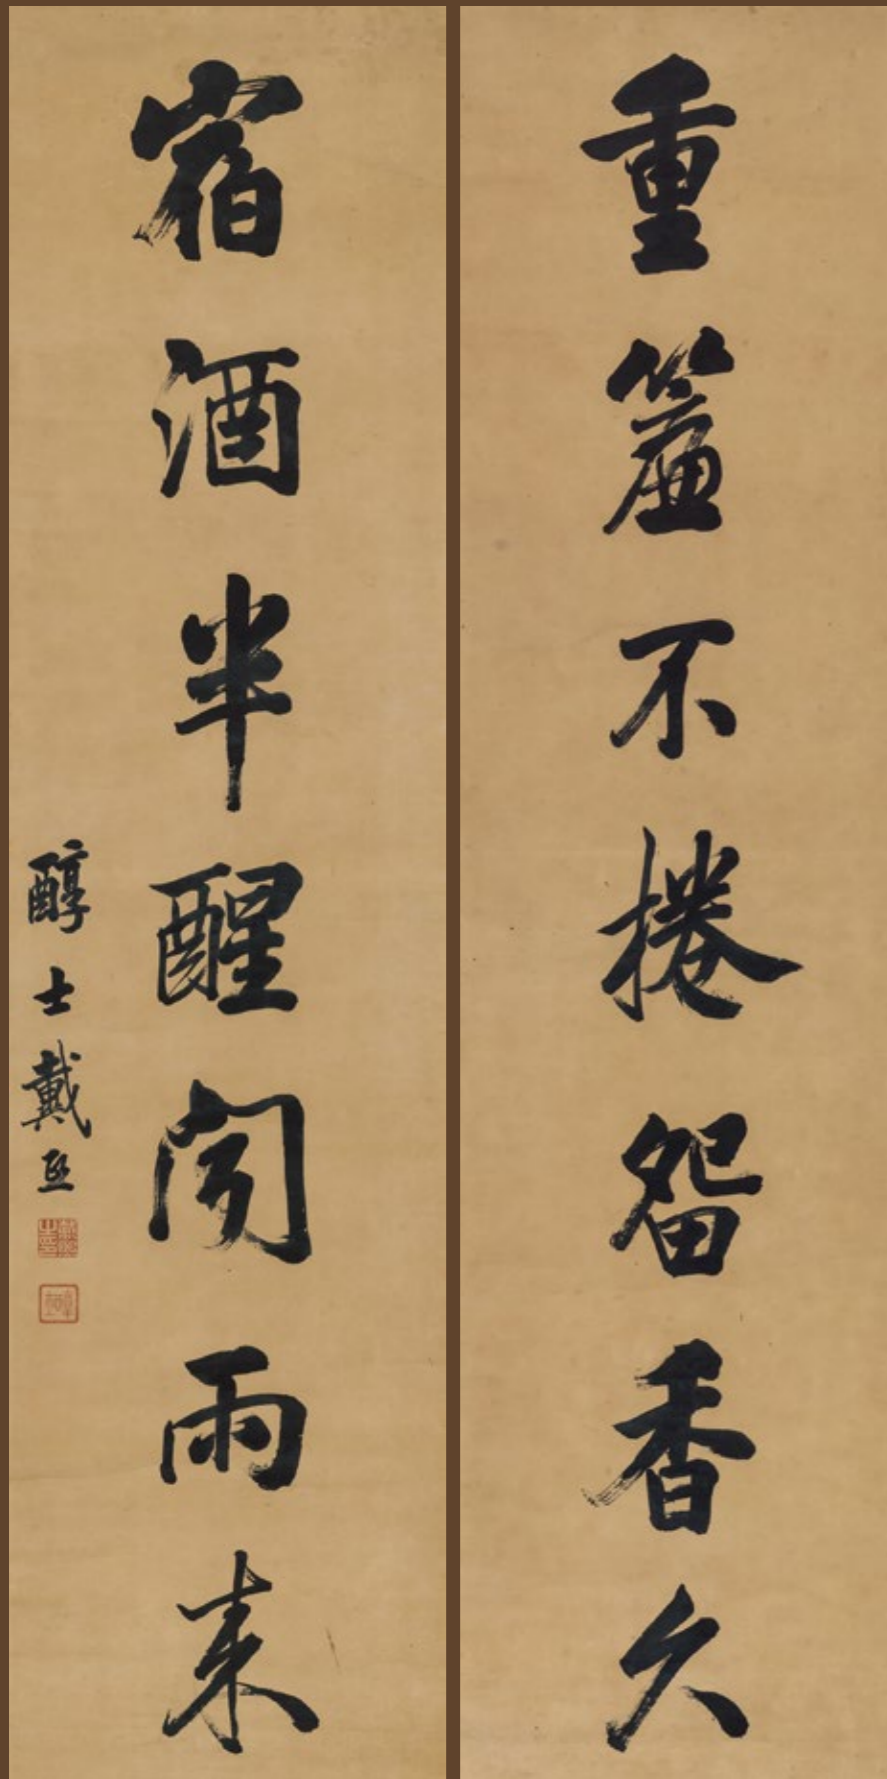 重簾不捲留香久
宿酒半醒聞雨來
醇士戴熙